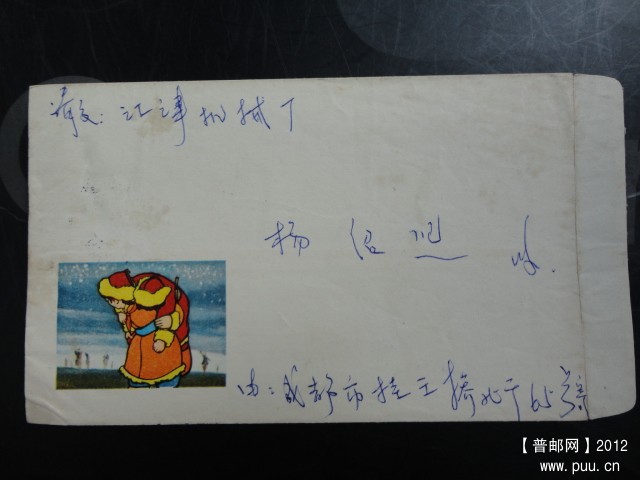 请交：江津机械厂
杨绍
收
由：成都市桂王桥北
65号
【普邮网】2012
www.puu.cn